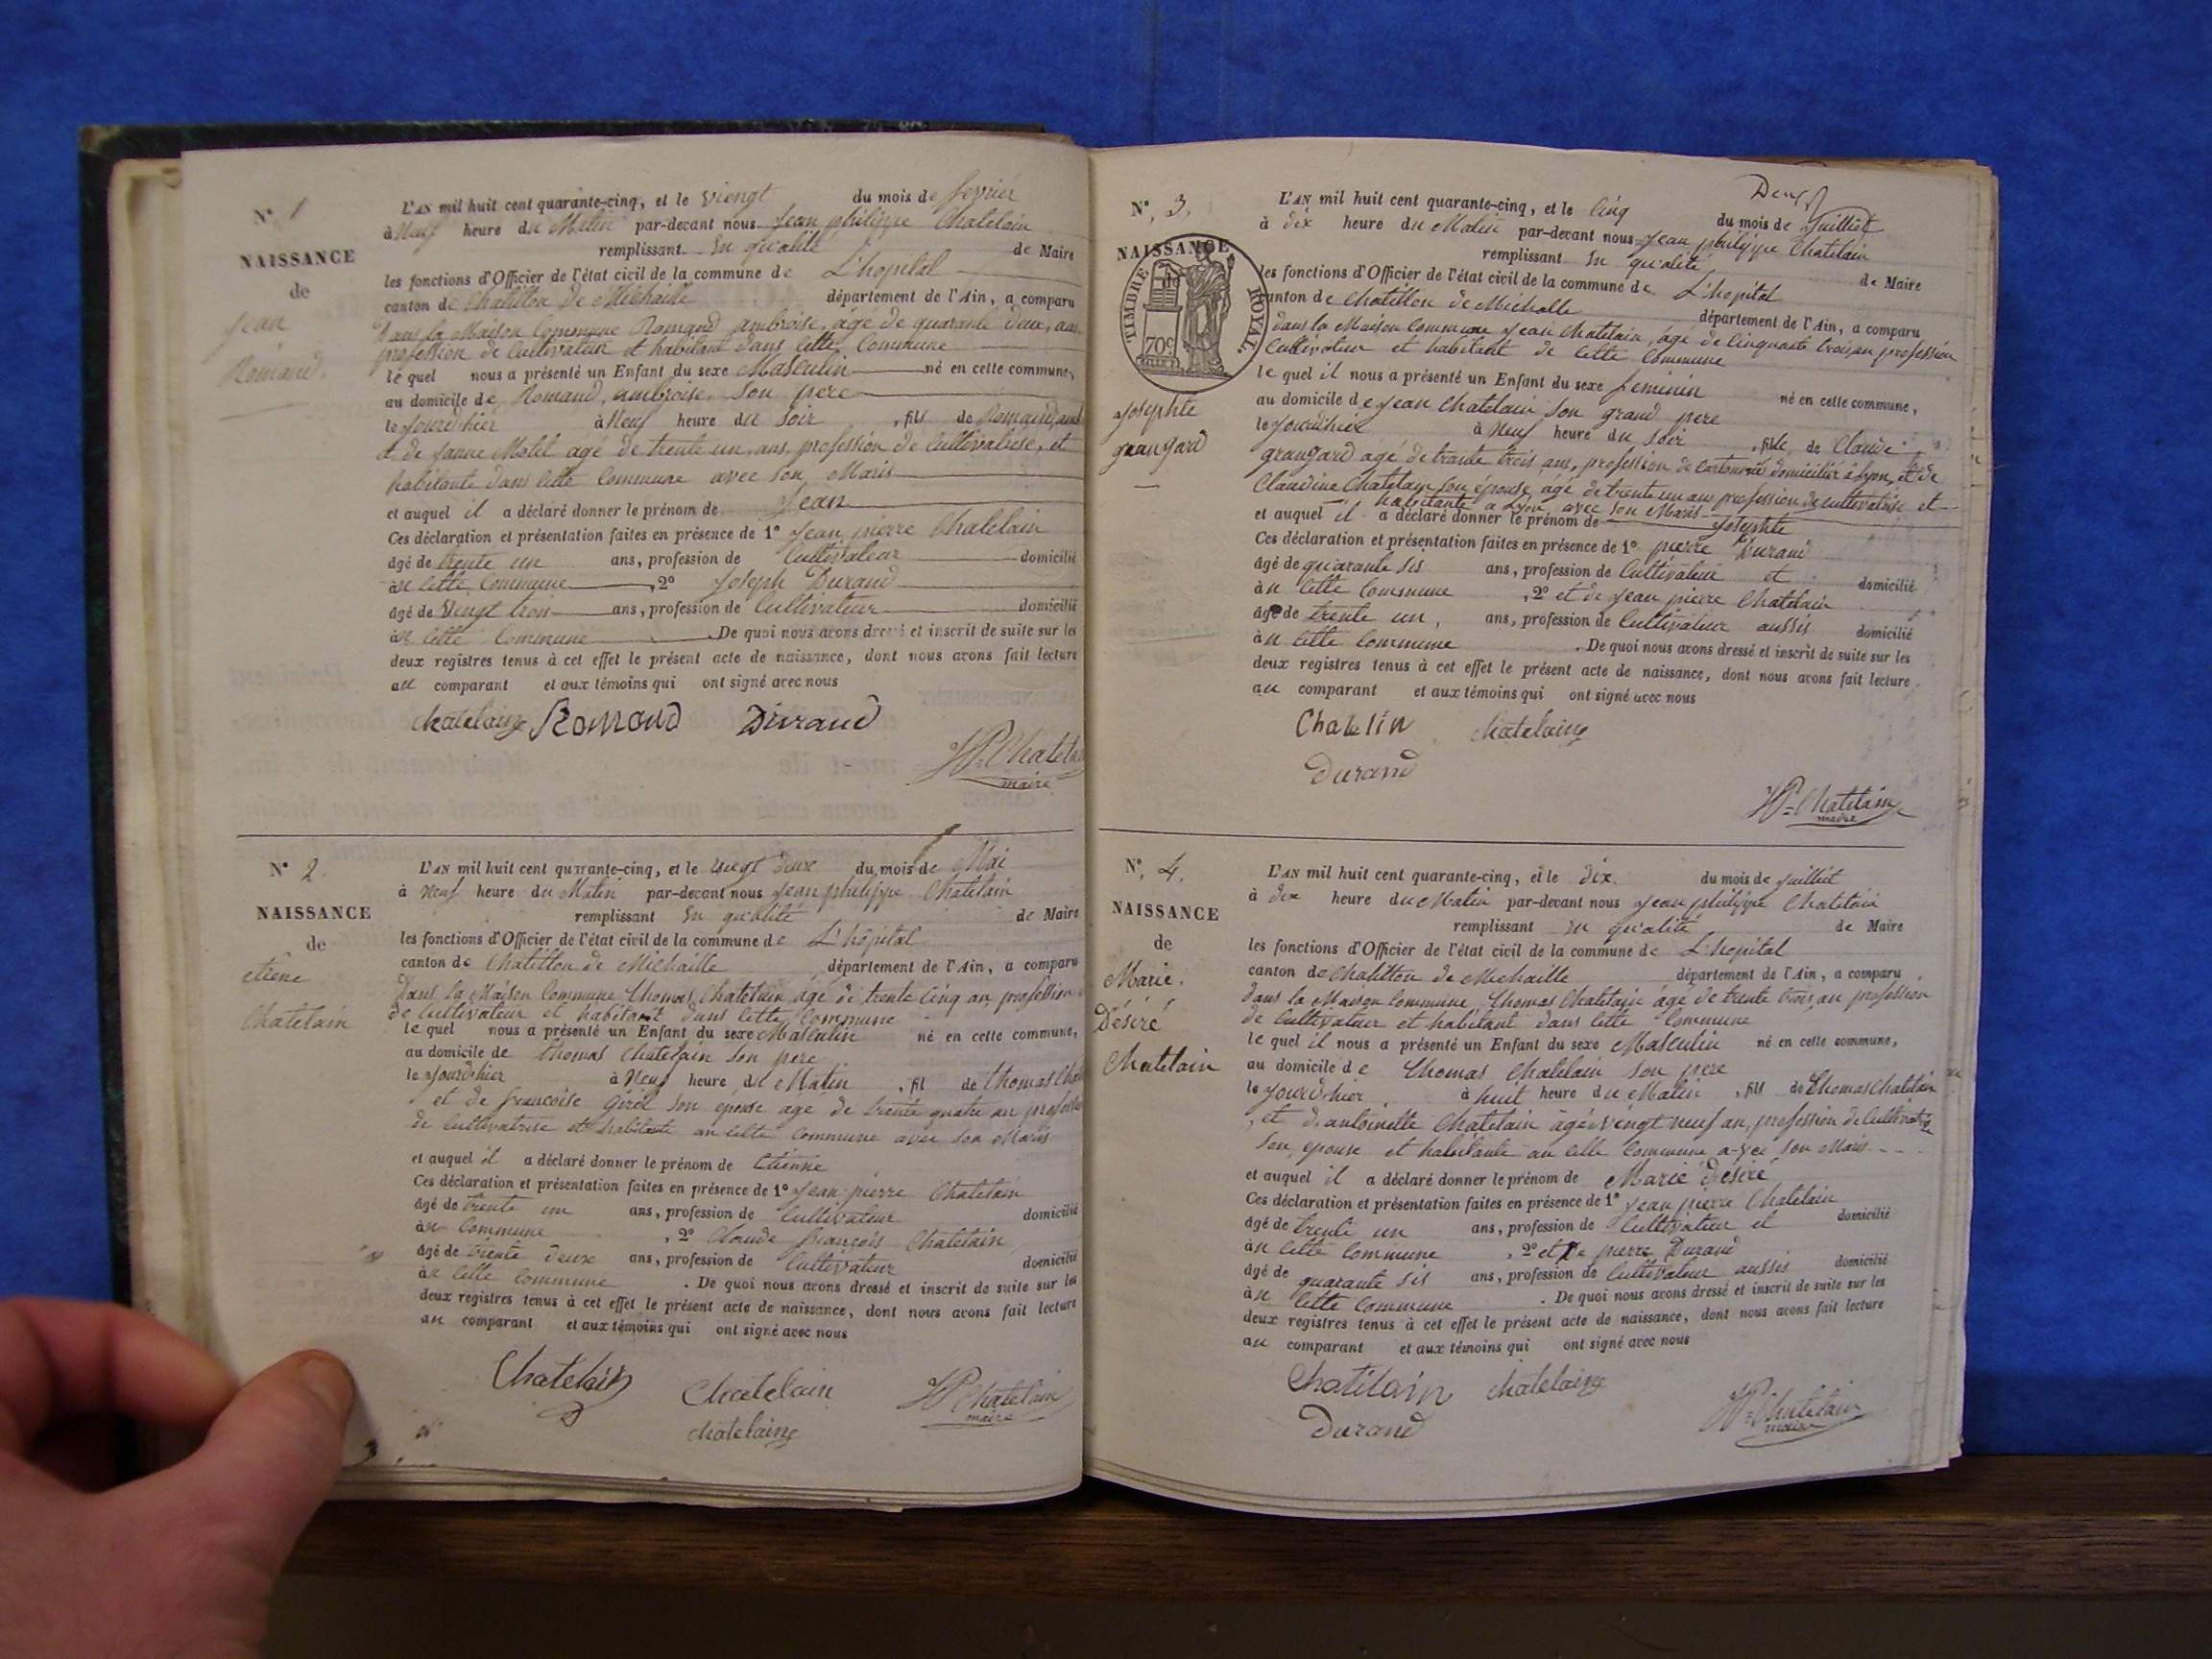 N° 1
NAISSANCE
de
Jean
Romand.
L'AN mil huit cent quarante-cinq, et le viengt du mois de fevrier
à Neuf heure du Matin par-devant nous Jean philippe Chatelain
remplissant En qu'alité de Maire
les fonctions d'Officier de l'état civil de la commune de L'hopital
canton de Chatillon de Michaille département de l'Ain, a comparu
Dans la Maison Commune Romand ambroise, agé de quarante deux, ans
profession de Cultivateur et habitant dans cette Commune
le quel nous a présenté un Enfant du sexe Masculin né en cette commune,
au domicile de Romand, ambroise, son pere
le jourdhier à Neuf heure du soir, fils de Romand, amb
et de Janne Motel agé de trente un, ans, profession de Cultivatrise, et
habitante dans cette Commune avec son Maris
et auquel il a déclaré donner le prénom de Jean
Ces déclaration et présentation faites en présence de 1° Jean pierre Chatelain
âgé de trente un ans, profession de Cultivateur domicilié
àn cette Commune, 2° Joseph Durand
âgé de Vingt trois ans, profession de Cultivateur domicilié
àn cette Commune. De quoi nous avons dressé et inscrit de suite sur les
deux registres tenus à cet effet le présent acte de naissance, dont nous avons fait lecture
au comparant et aux témoins qui ont signé avec nous
chatelain Romand Durand
JP=Chatelain
maire
N° 2.
NAISSANCE
de
etiene
Chatelain
L'AN mil huit cent quarante-cinq, et le viegt deux du mois de Mai
à Neuf heure du Matin par-devant nous Jean philippe Chatelain
remplissant En qu'alité de Maire
les fonctions d'Officier de l'état civil de la commune de L'hôpital
canton de Chatillon de Michaille département de l'Ain, a comparu
Dans la Maison Commune Thomas Chatelain agé de trente Cinq an profession
de Cultivateur et habitant dans cette Commune
le quel nous a présenté un Enfant du sexe Masculin né en cette commune,
au domicile de Thomas Chatelain son pere
le jourdhier à Neuf heure du Matin, fil de thomas Cha
et de francoise Girel son épouse agé de trente quatre an profession
de Cultivatrise et habitante an cette Commune avec son Maris
et auquel il a déclaré donner le prénom de Etienne
Ces déclaration et présentation faites en présence de 1° Jean pierre Chatelain
âgé de trente un ans, profession de Cultivateur domicilié
àn Commune, 2° Claude francois Chatelain
âgé de trente deux ans, profession de Cultivateur domicilié
àn cette commune. De quoi nous avons dressé et inscrit de suite sur les
deux registres tenus à cet effet le présent acte de naissance, dont nous avons fait lecture
au comparant et aux témoins qui ont signé avec nous
Chatelain Chatelain JP Chatelain
chatelain maire
Deux
N°. 3.
NAISSANCE
de
TIMBRE ROYAL.
70c
Josephte
grangard
L'AN mil huit cent quarante-cinq, et le Cinq du mois de Juilliet
à dix heure du Matin par-devant nous Jean philippe Chatelain
remplissant En qu'alité de Maire
les fonctions d'Officier de l'état civil de la commune de L'hopital
canton de Chatillon de Michalle département de l'Ain, a comparu
dans la Maison Commune Jean Chatelain, agé de Cinquante trois an profession
Cultivateur et habitant de cette Commune
le quel il nous a présenté un Enfant du sexe feminin né en cette commune,
au domicile de Jean Chatelain son grand pere
le jourdhier à Neuf heure du soir, fille de Claude
grangard agé de trante trois ans, profession de domicilier à lyon, et de
Claudine Chatelain son épouse agé de trente un ans profession de cultivatrise et
habitante a Lyon avec son Maris
et auquel il a déclaré donner le prénom de Josephte
Ces déclaration et présentation faites en présence de 1° pierre Durand
âgé de quarante sis ans, profession de Cultivateur et domicilié
àn cette Commune, 2° et de Jean pierre Chatelain
âgé de trente un, ans, profession de Cultivateur aussis domicilié
àn cette Commune. De quoi nous avons dressé et inscrit de suite sur les
deux registres tenus à cet effet le présent acte de naissance, dont nous avons fait lecture
au comparant et aux témoins qui ont signé avec nous
Chatelin chatelain
Durand
JP=Chatelain
maire
N°. 4.
NAISSANCE
de
Marie.
Désiré
Chatelain
L'AN mil huit cent quarante-cinq, et le dix. du mois de juilliet
à dix heure du Matin par-devant nous Jean philippe Chatelain
remplissant En qu'alité de Maire
les fonctions d'Officier de l'état civil de la commune de L'hopital
canton de Chatillon de Michaille département de l'Ain, a comparu
Dans la Maison Commune Thomas Chatelain agé de trente trois, an profession
de Cultivateur et habitant dans cette Commune
le quel il nous a présenté un Enfant du sexe Masculin né en cette commune,
au domicile de Thomas Chatelain son pere
le jourdhier, à huit heure du Matin, fils de Thomas Chatelain
, et d. antoinette Chatelain agé vengt neuf an, profession de Cultivatrise
son épouse et habitante an cette Commune a-vec son Maris
et auquel il a déclaré donner le prénom de Marie désiré
Ces déclaration et présentation faites en présence de 1° Jean pierre Chatelain
âgé de trente un ans, profession de Cultivateur et domicilié
àn cette Commune, 2° et de pierre Durand
âgé de quarante sis ans, profession de Cultivateur aussis domicilié
àn cette Commune. De quoi nous avons dressé et inscrit de suite sur les
deux registres tenus à cet effet le présent acte de naissance, dont nous avons fait lecture
au comparant et aux témoins qui ont signé avec nous
Chatelain chatelain
Durand
JP=Chatelain
maire